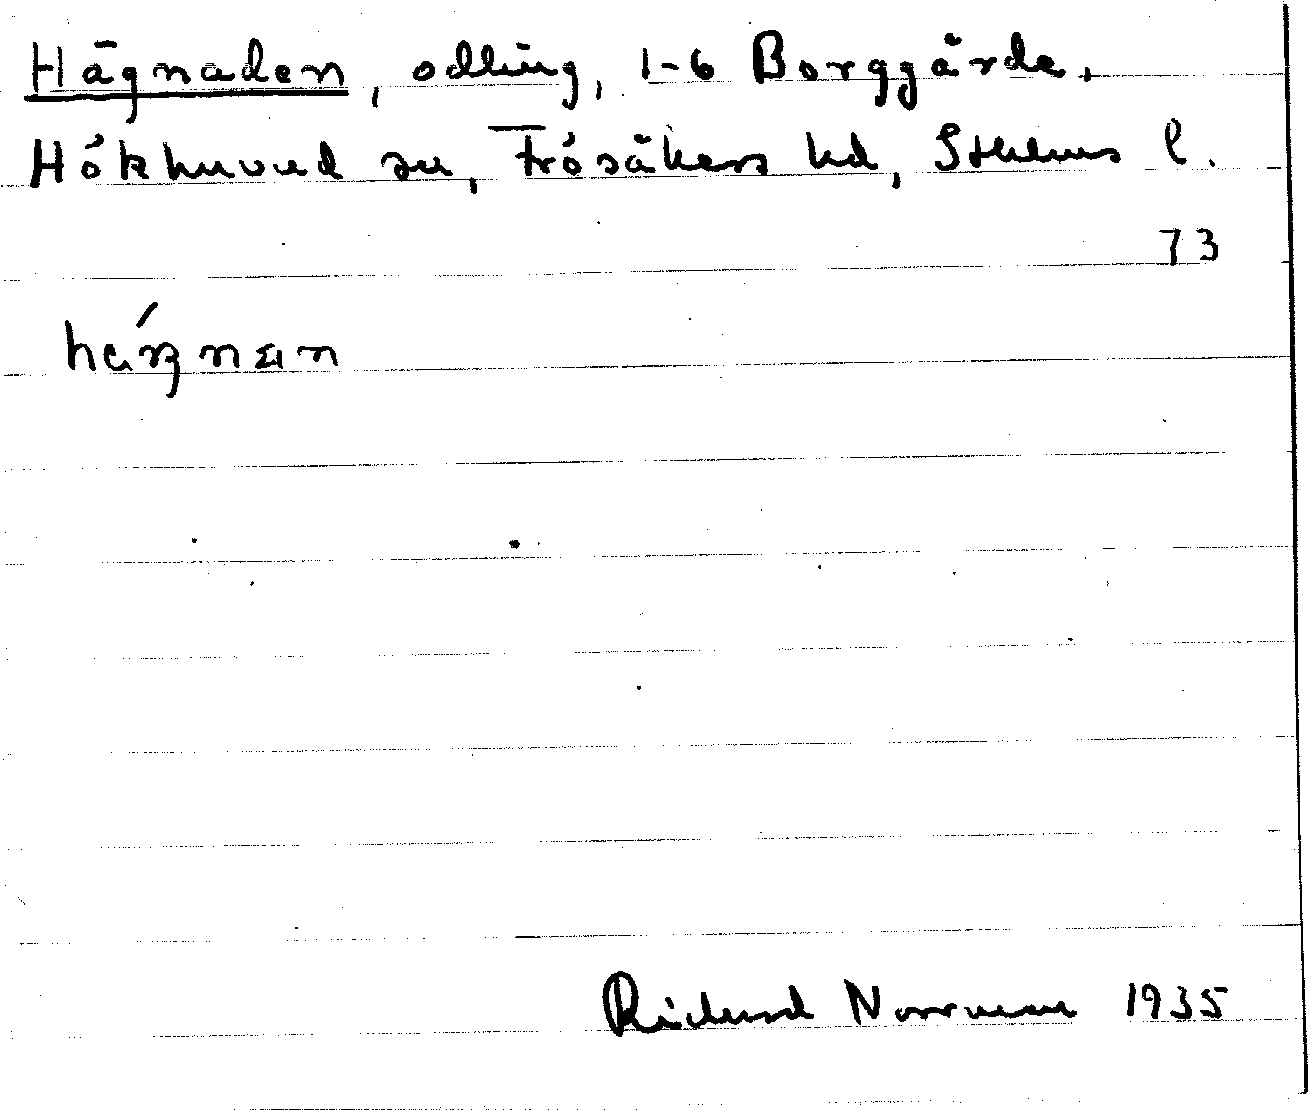 Hägnaden, odling, 1-6 Borggärde,
Hökhuvud sn, Frösåkers hd, Sthlms l.
73
Rickard Norrman 1935